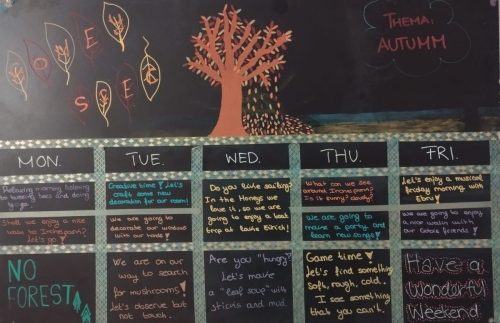 THEMA:
AUTUMM
MON.
TUE.
WED.
THU.
FRI.
Relaxing morning listening
to
Creative time! Let's
craft some new
decoration for our room!
Do you like sailing?
In the Honeys we
love it, so we are
going to enjoy a boat
trip at lake Zürich!
What can we see
around
Is it sunny? cloudy?
Let's enjoy a musical
friday morning, with
Ebru!
Shall we enjoy a nice
walk to
let's go!
We are going to
decorate our windows
with our hands!
We are going to
make a party and
learn new songs!
We are going to enjoy
a nice walk with
our friends!
NO
FOREST
We are on our
way to search
for mushrooms!
let's observe but
not touch.
Are you "hungry?"
Let's make
a "leaf soup" with
sticks and mud.
Game time!
let's find something
soft, rough, cold.
I see something
that you can't.
Have a
Wonderful
Weekend